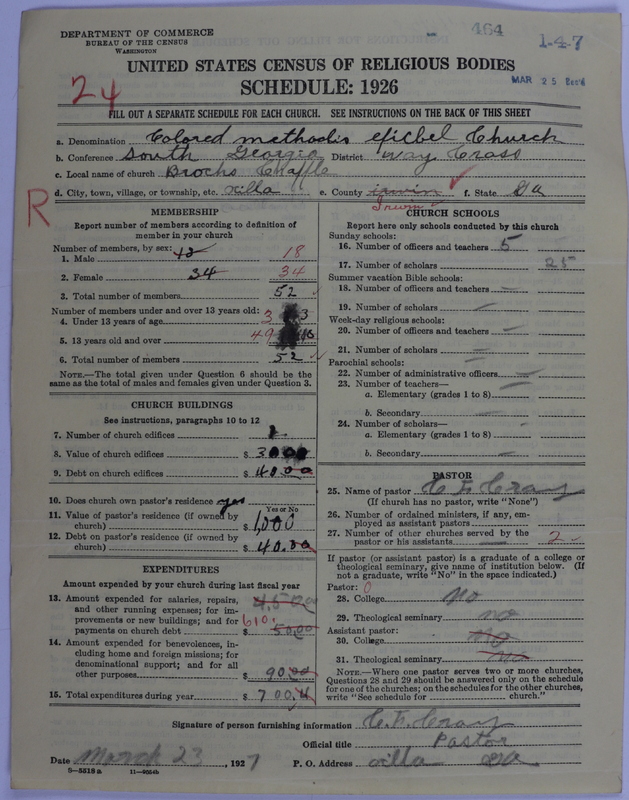 DEPARTMENT OF COMMERCE
BUREAU OF THE CENSUS
WASHINGTON
464
1-4-7
MAR 25 Rec'd
UNITED STATES CENSUS OF RELIGIOUS BODIES
SCHEDULE: 1926
24
FILL OUT A SEPARATE SCHEDULE FOR EACH CHURCH. SEE INSTRUCTIONS ON THE BACK OF THIS SHEET
a. Denomination Colored methodis epicbel Church
b. Conference South Georgia District Way Cross
c. Local name of church Brochs Chaffle
d. City, town, village, or township, etc. xilla e. County Irwin f. State Ga
Irwin
R
MEMBERSHIP
Report number of members according to definition of member in your church
Number of members, by sex:
1. Male 18 18
2. Female 34 34
3. Total number of members 52
Number of members under and over 13 years old:
4. Under 13 years of age 3 3
5. 13 years old and over 49
6. Total number of members 52
NOTE.—The total given under Question 6 should be the same as the total of males and females given under Question 3.
CHURCH BUILDINGS
See instructions, paragraphs 10 to 12
7. Number of church edifices 1
8. Value of church edifices $ 3000
9. Debt on church edifices $ 40.00
10. Does church own pastor's residence yes
Yes or No
11. Value of pastor's residence (if owned by church) $ 1,000
12. Debt on pastor's residence (if owned by church) $ 40.00
EXPENDITURES
Amount expended by your church during last fiscal year
13. Amount expended for salaries, repairs, and other running expenses; for improvements or new buildings; and for payments on church debt 610. $ 50.00
14. Amount expended for benevolences, including home and foreign missions; for denominational support; and for all other purposes $ 90.00
15. Total expenditures during year $ 700
CHURCH SCHOOLS
Report here only schools conducted by this church
Sunday schools:
16. Number of officers and teachers 5
17. Number of scholars 25
Summer vacation Bible schools:
18. Number of officers and teachers —
19. Number of scholars —
Week-day religious schools:
20. Number of officers and teachers —
21. Number of scholars —
Parochial schools:
22. Number of administrative officers —
23. Number of teachers—
a. Elementary (grades 1 to 8) —
b. Secondary —
24. Number of scholars—
a. Elementary (grades 1 to 8) —
b. Secondary —
PASTOR
25. Name of pastor C. F. Cray
(If church has no pastor, write "None")
26. Number of ordained ministers, if any, employed as assistant pastors
27. Number of other churches served by the pastor or his assistants — 2
If pastor (or assistant pastor) is a graduate of a college or theological seminary, give name of institution below. (If not a graduate, write "No" in the space indicated.)
Pastor: 0
28. College no
29. Theological seminary no
Assistant pastor:
30. College no
31. Theological seminary no
NOTE.—Where one pastor serves two or more churches, Questions 28 and 29 should be answered only on the schedule for one of the churches; on the schedules for the other churches, write "See schedule for ________ church."
Signature of person furnishing information C. F. Cray
Official title Pastor
Date March 23, 1927 P. O. Address xilla Ga
8—5518 a 11—9054b